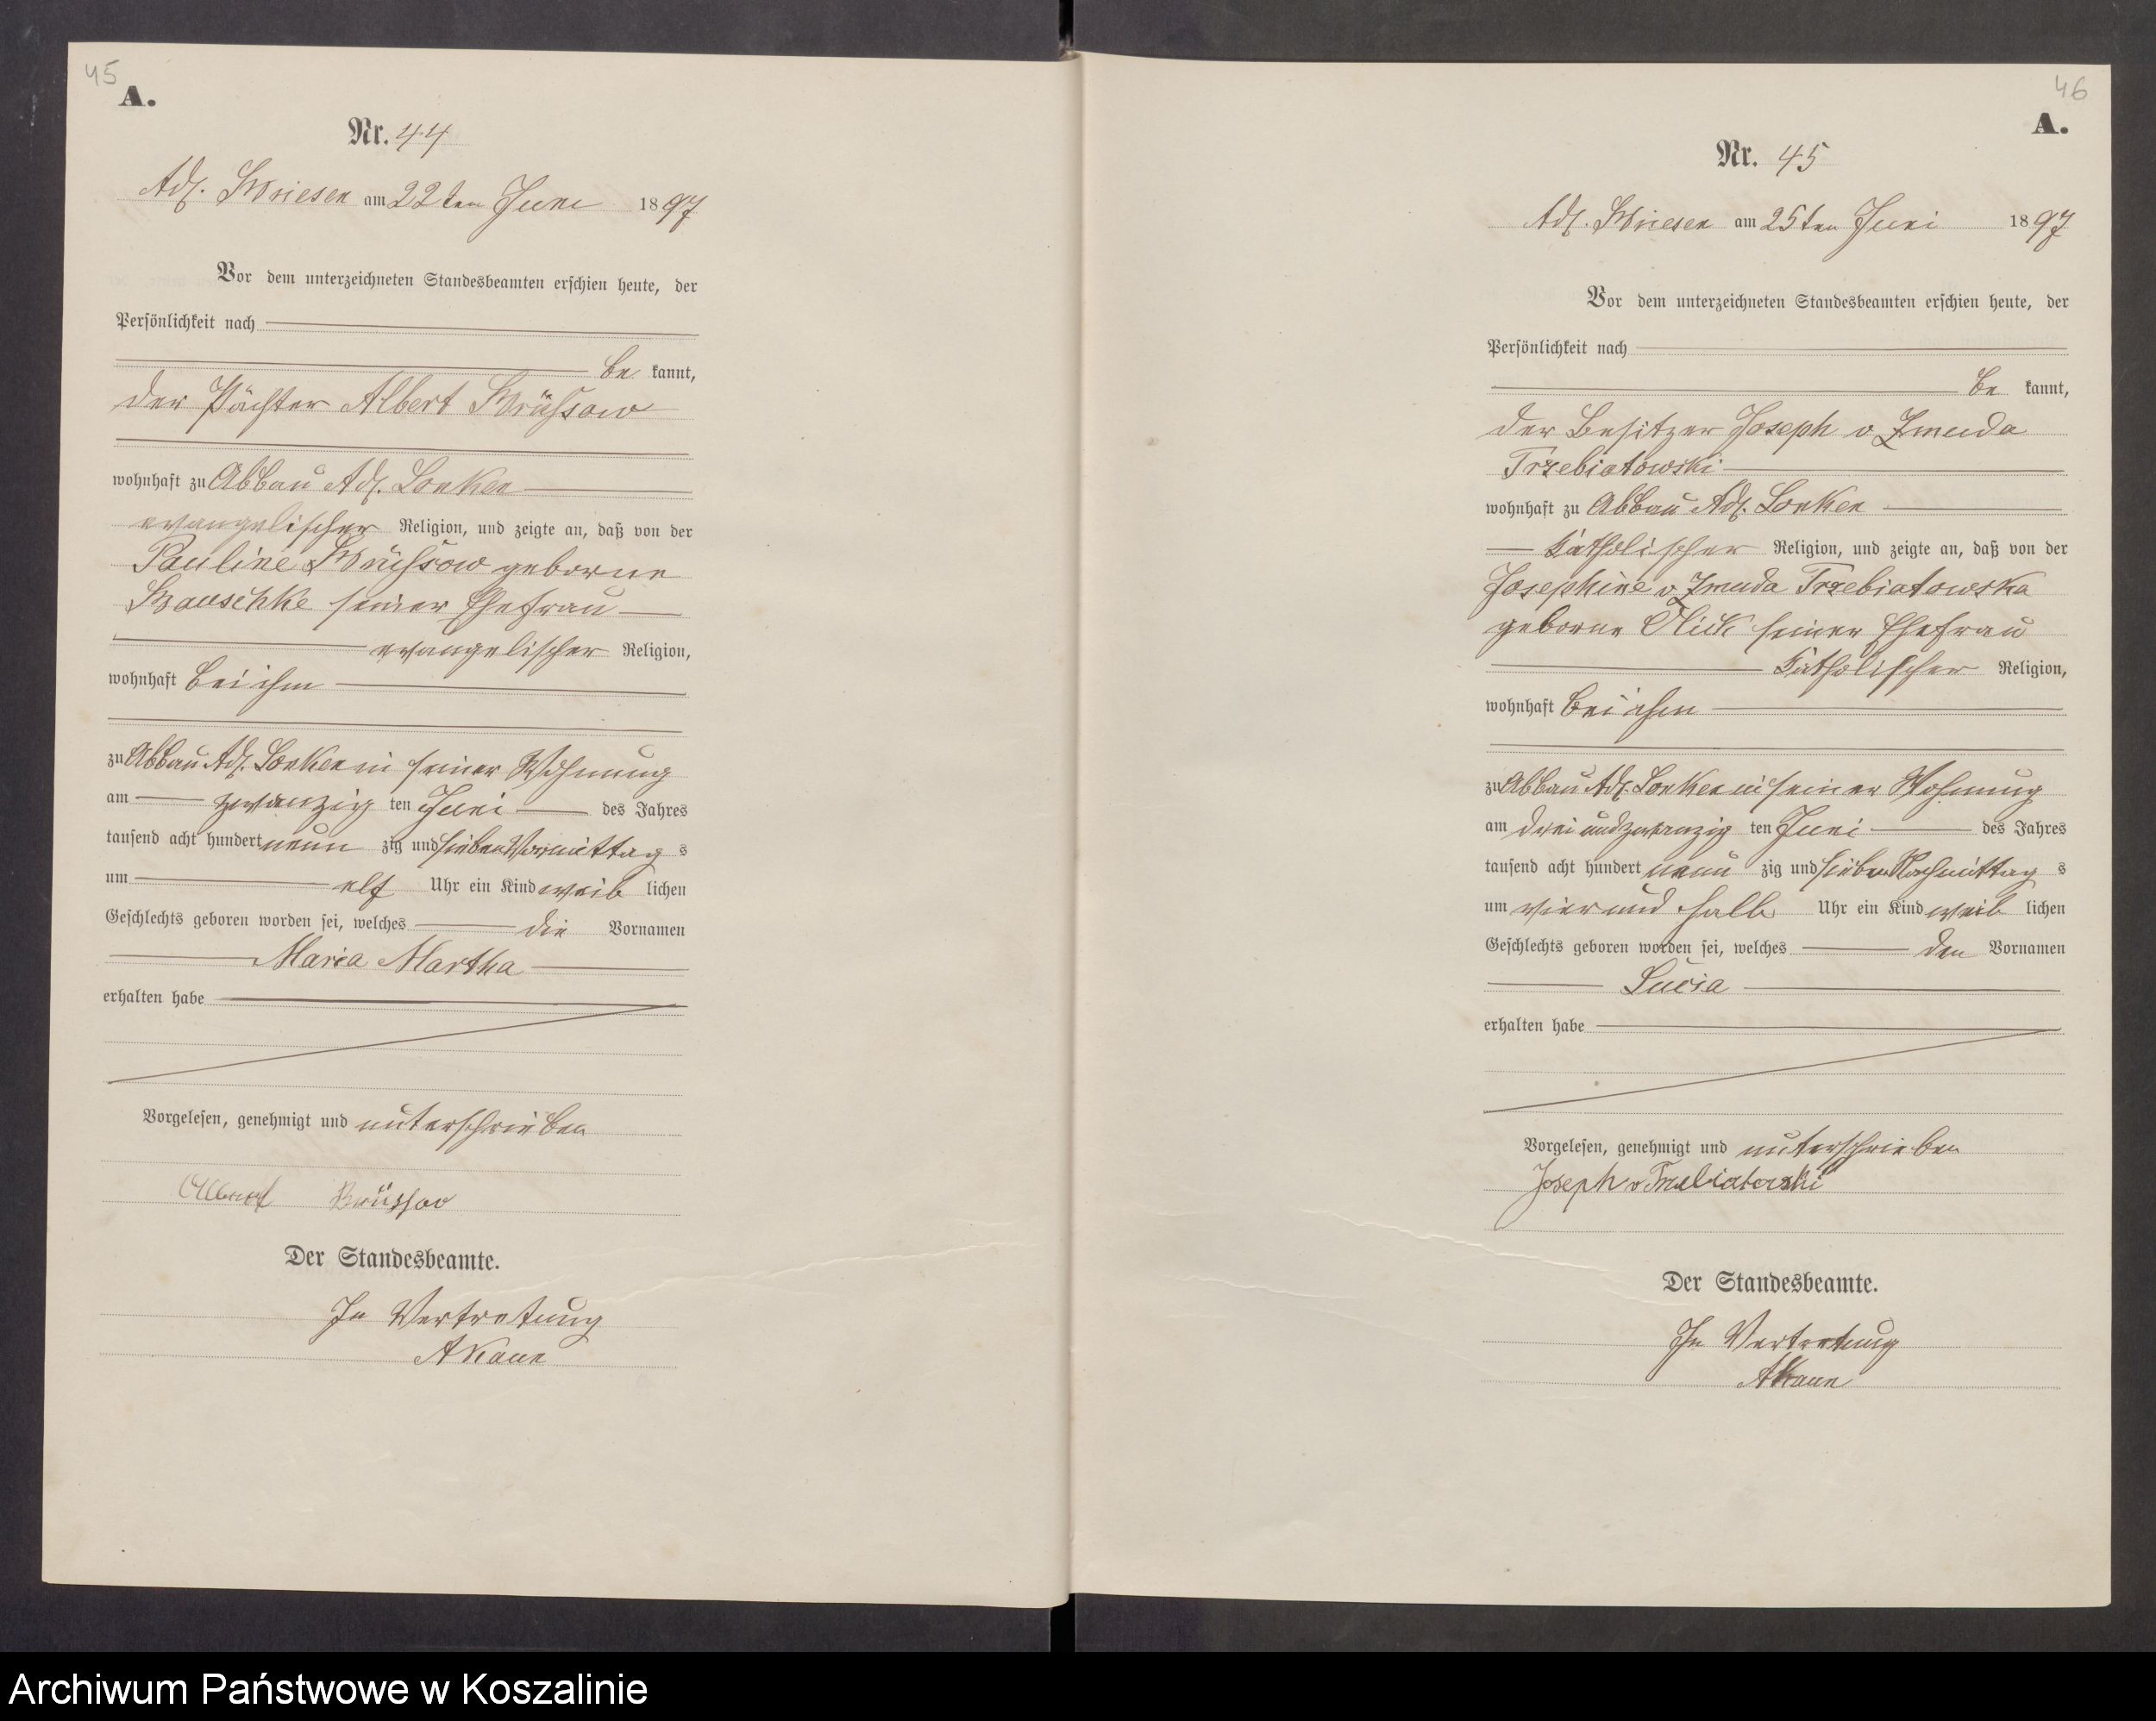 45
A.
Nr. 44
Adl. Briesen am 22ten Juni 1897
Vor dem unterzeichneten Standesbeamten erschien heute, der
Persönlichkeit nach
be kannt,
der Pächter Albert Brüssow
wohnhaft zu Abbau Adl. Lonken
evangelischer Religion, und zeigte an, daß von der
Pauline Brüssow geborne
seiner Ehefrau
evangelischer Religion,
wohnhaft bei ihm
zu Abbau Adl. Lonken in seiner Wohnung
am zwanzig ten Juni des Jahres
tausend acht hundert neun zig und sieben Vormittag s
um elf Uhr ein Kind weib lichen
Geschlechts geboren worden sei, welches die Vornamen
Maria Martha
erhalten habe
Vorgelesen, genehmigt und unterschrieben
Albert Brüssow
Der Standesbeamte.
In Vertretung
46
A.
Nr. 45
Adl. Briesen am 25ten Juni 1897
Vor dem unterzeichneten Standesbeamten erschien heute, der
Persönlichkeit nach
be kannt,
der Besitzer Joseph v Zmuda
Trzebiatowski
wohnhaft zu Abbau Adl. Lonken
katholischer Religion, und zeigte an, daß von der
Josephine v Zmuda Trzebiatowska
geborne seiner Ehefrau
katholischer Religion,
wohnhaft bei ihm
zu Abbau Adl. Lonken in seiner Wohnung
am drei und zwanzig ten Juni des Jahres
tausend acht hundert neun zig und sieben Nachmittag s
um vier und halb Uhr ein Kind weib lichen
Geschlechts geboren worden sei, welches den Vornamen
Lucia
erhalten habe
Vorgelesen, genehmigt und unterschrieben
Joseph v Trzebiatowski
Der Standesbeamte.
In Vertretung
Archiwum Państwowe w Koszalinie